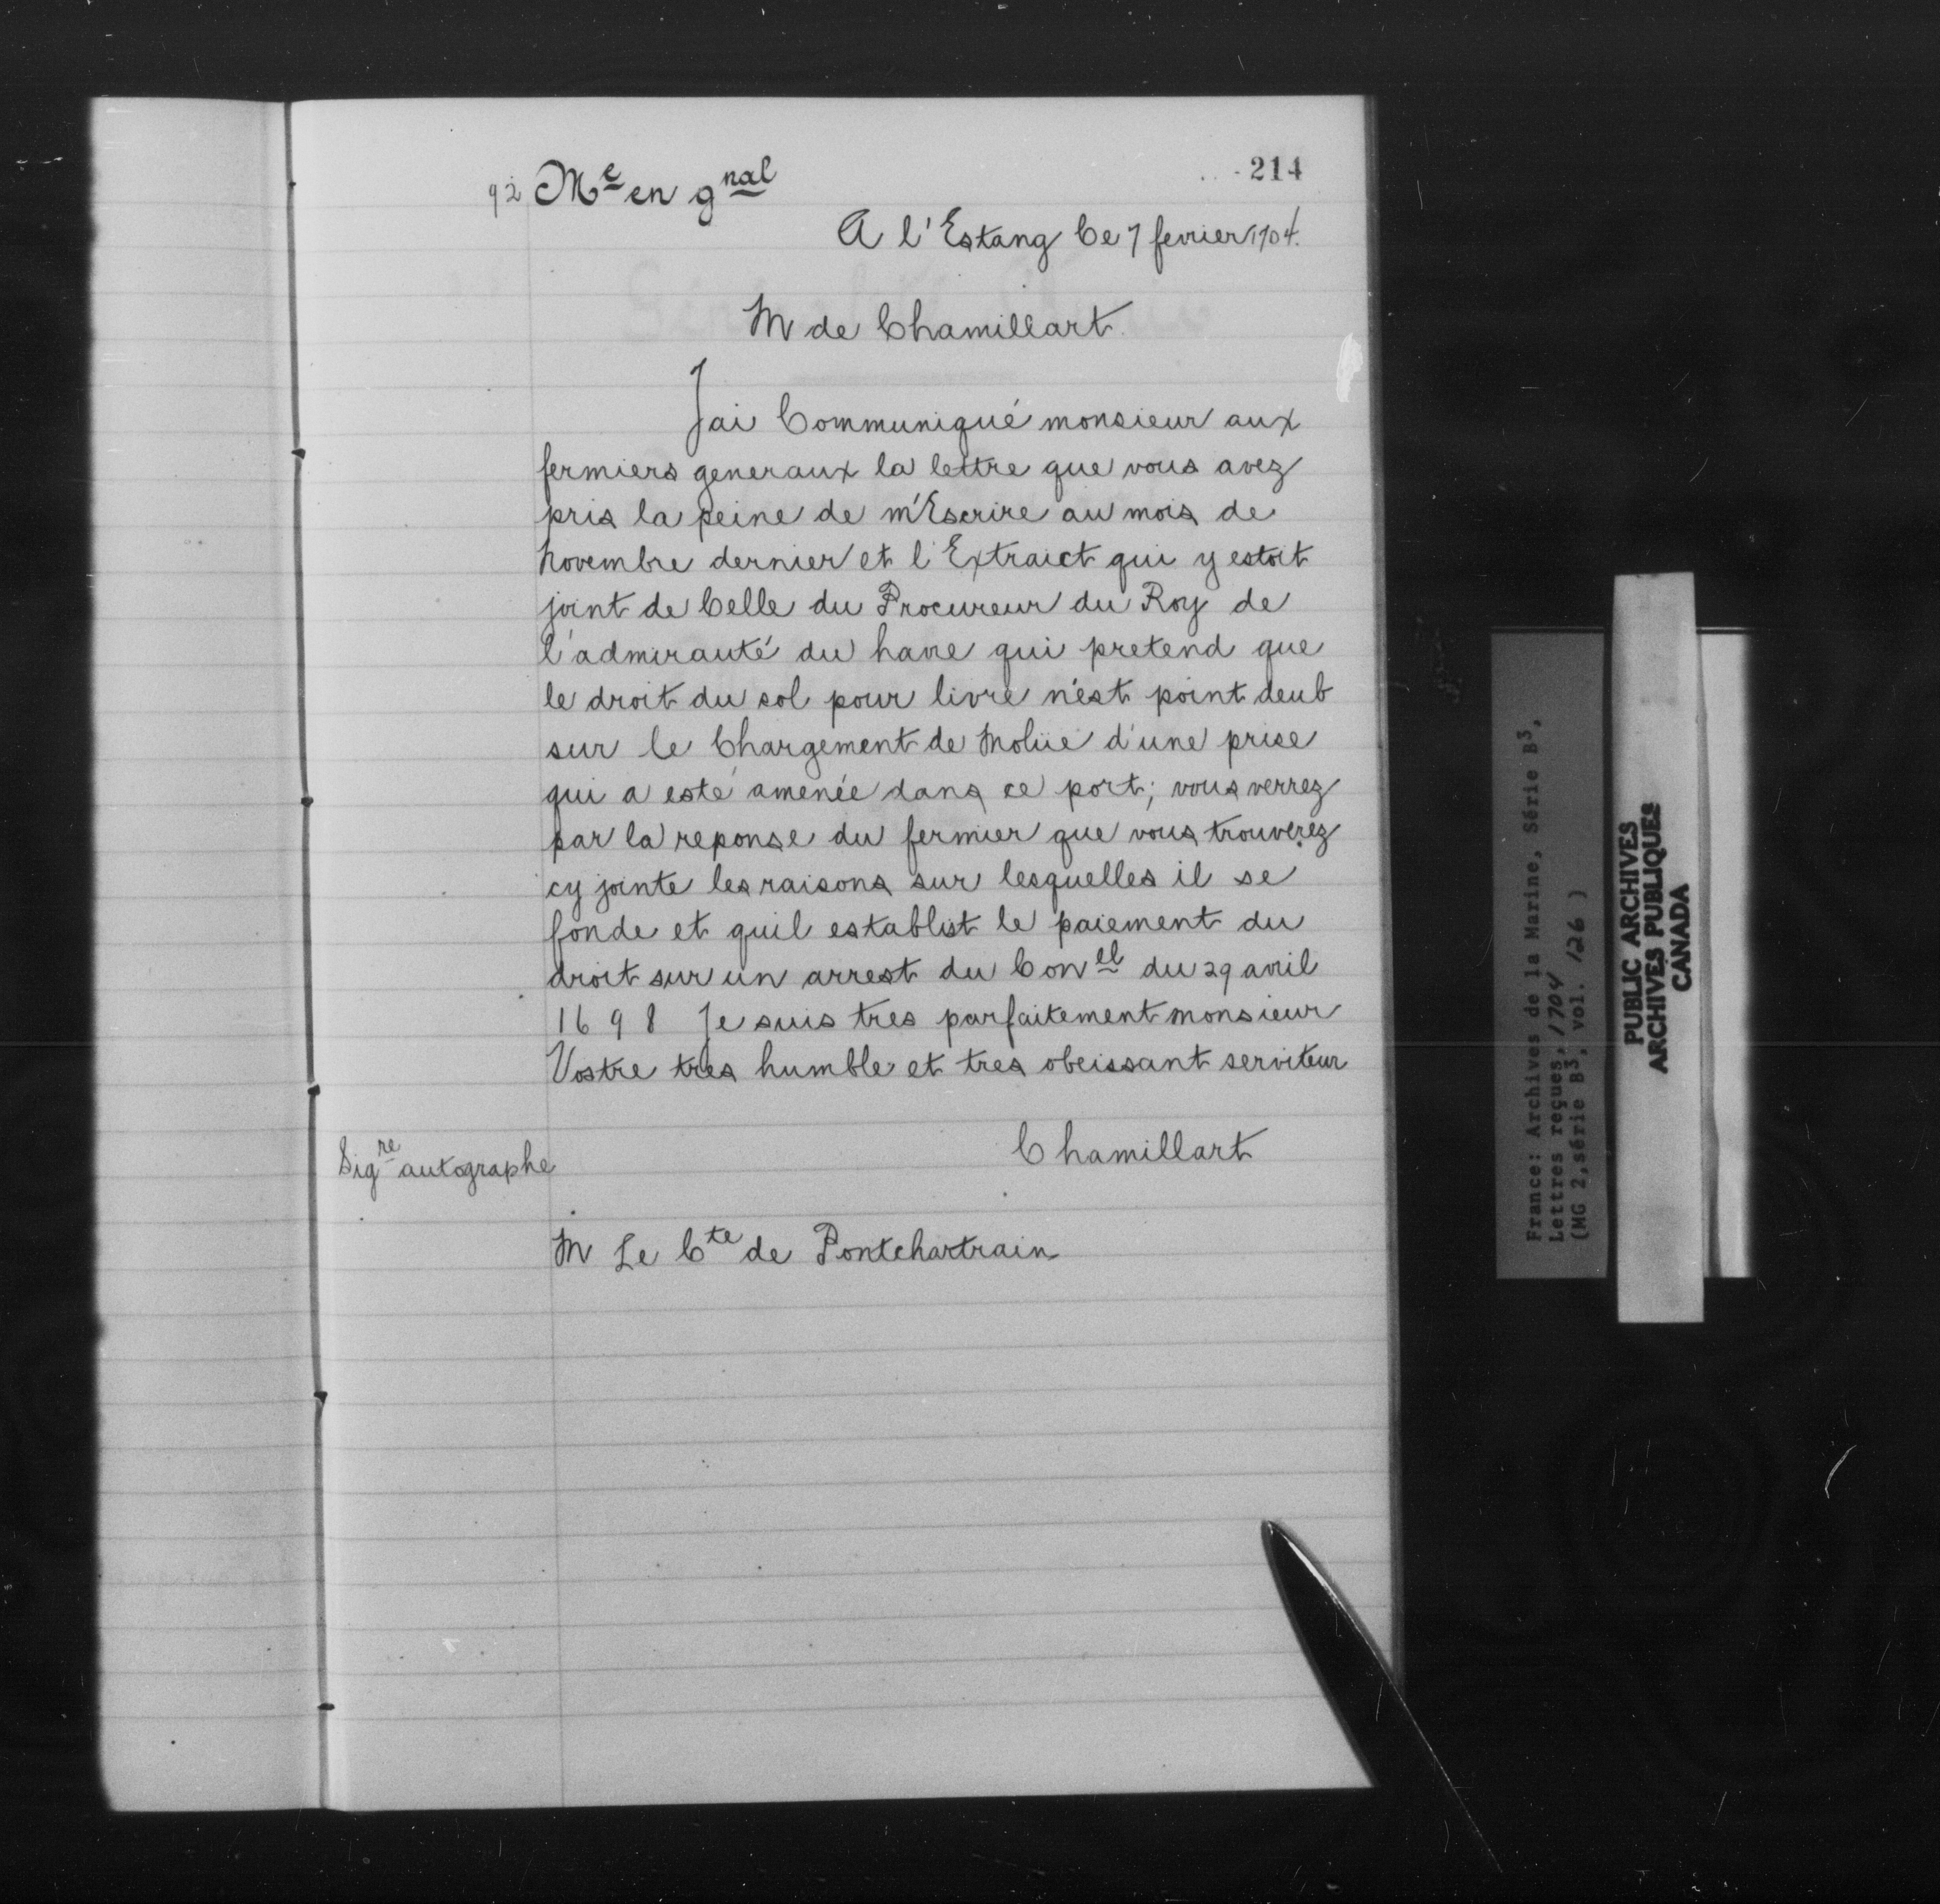 214
92 Me en gnal
A l'Estang Ce 7 fevrier 1704.
M de Chamillart
Jai Communiqué monsieur aux
fermiers generaux la lettre que vous avez
pris la peine de m'Escrire au mois de
Novembre dernier et l'Extraict qui y estoit
joint de Celle du Procureur du Roy de
l'admirauté du havre qui pretend que
le droit du sol pour livre n'est point deub
sur le Chargement de Moliie d'une prise
qui a esté amenée dans ce port; vous verrez
par la reponse du fermier que vous trouverez
cy jointe les raisons sur lesquelles il se
fonde et quil establist le paiement du
droit sur un arrest du Conel du 29 avril
1698 Je suis tres parfaitement monsieur
Vostre tres humble et tres obeissant serviteur
Chamillart
Sigre autographe
M Le Cte de Pontchartrain
France: Archives de la Marine, Série B3,
Lettres reçues, 1704
(MG 2, série B3, vol. 126 )
PUBLIC ARCHIVES
ARCHIVES PUBLIQUES
CANADA